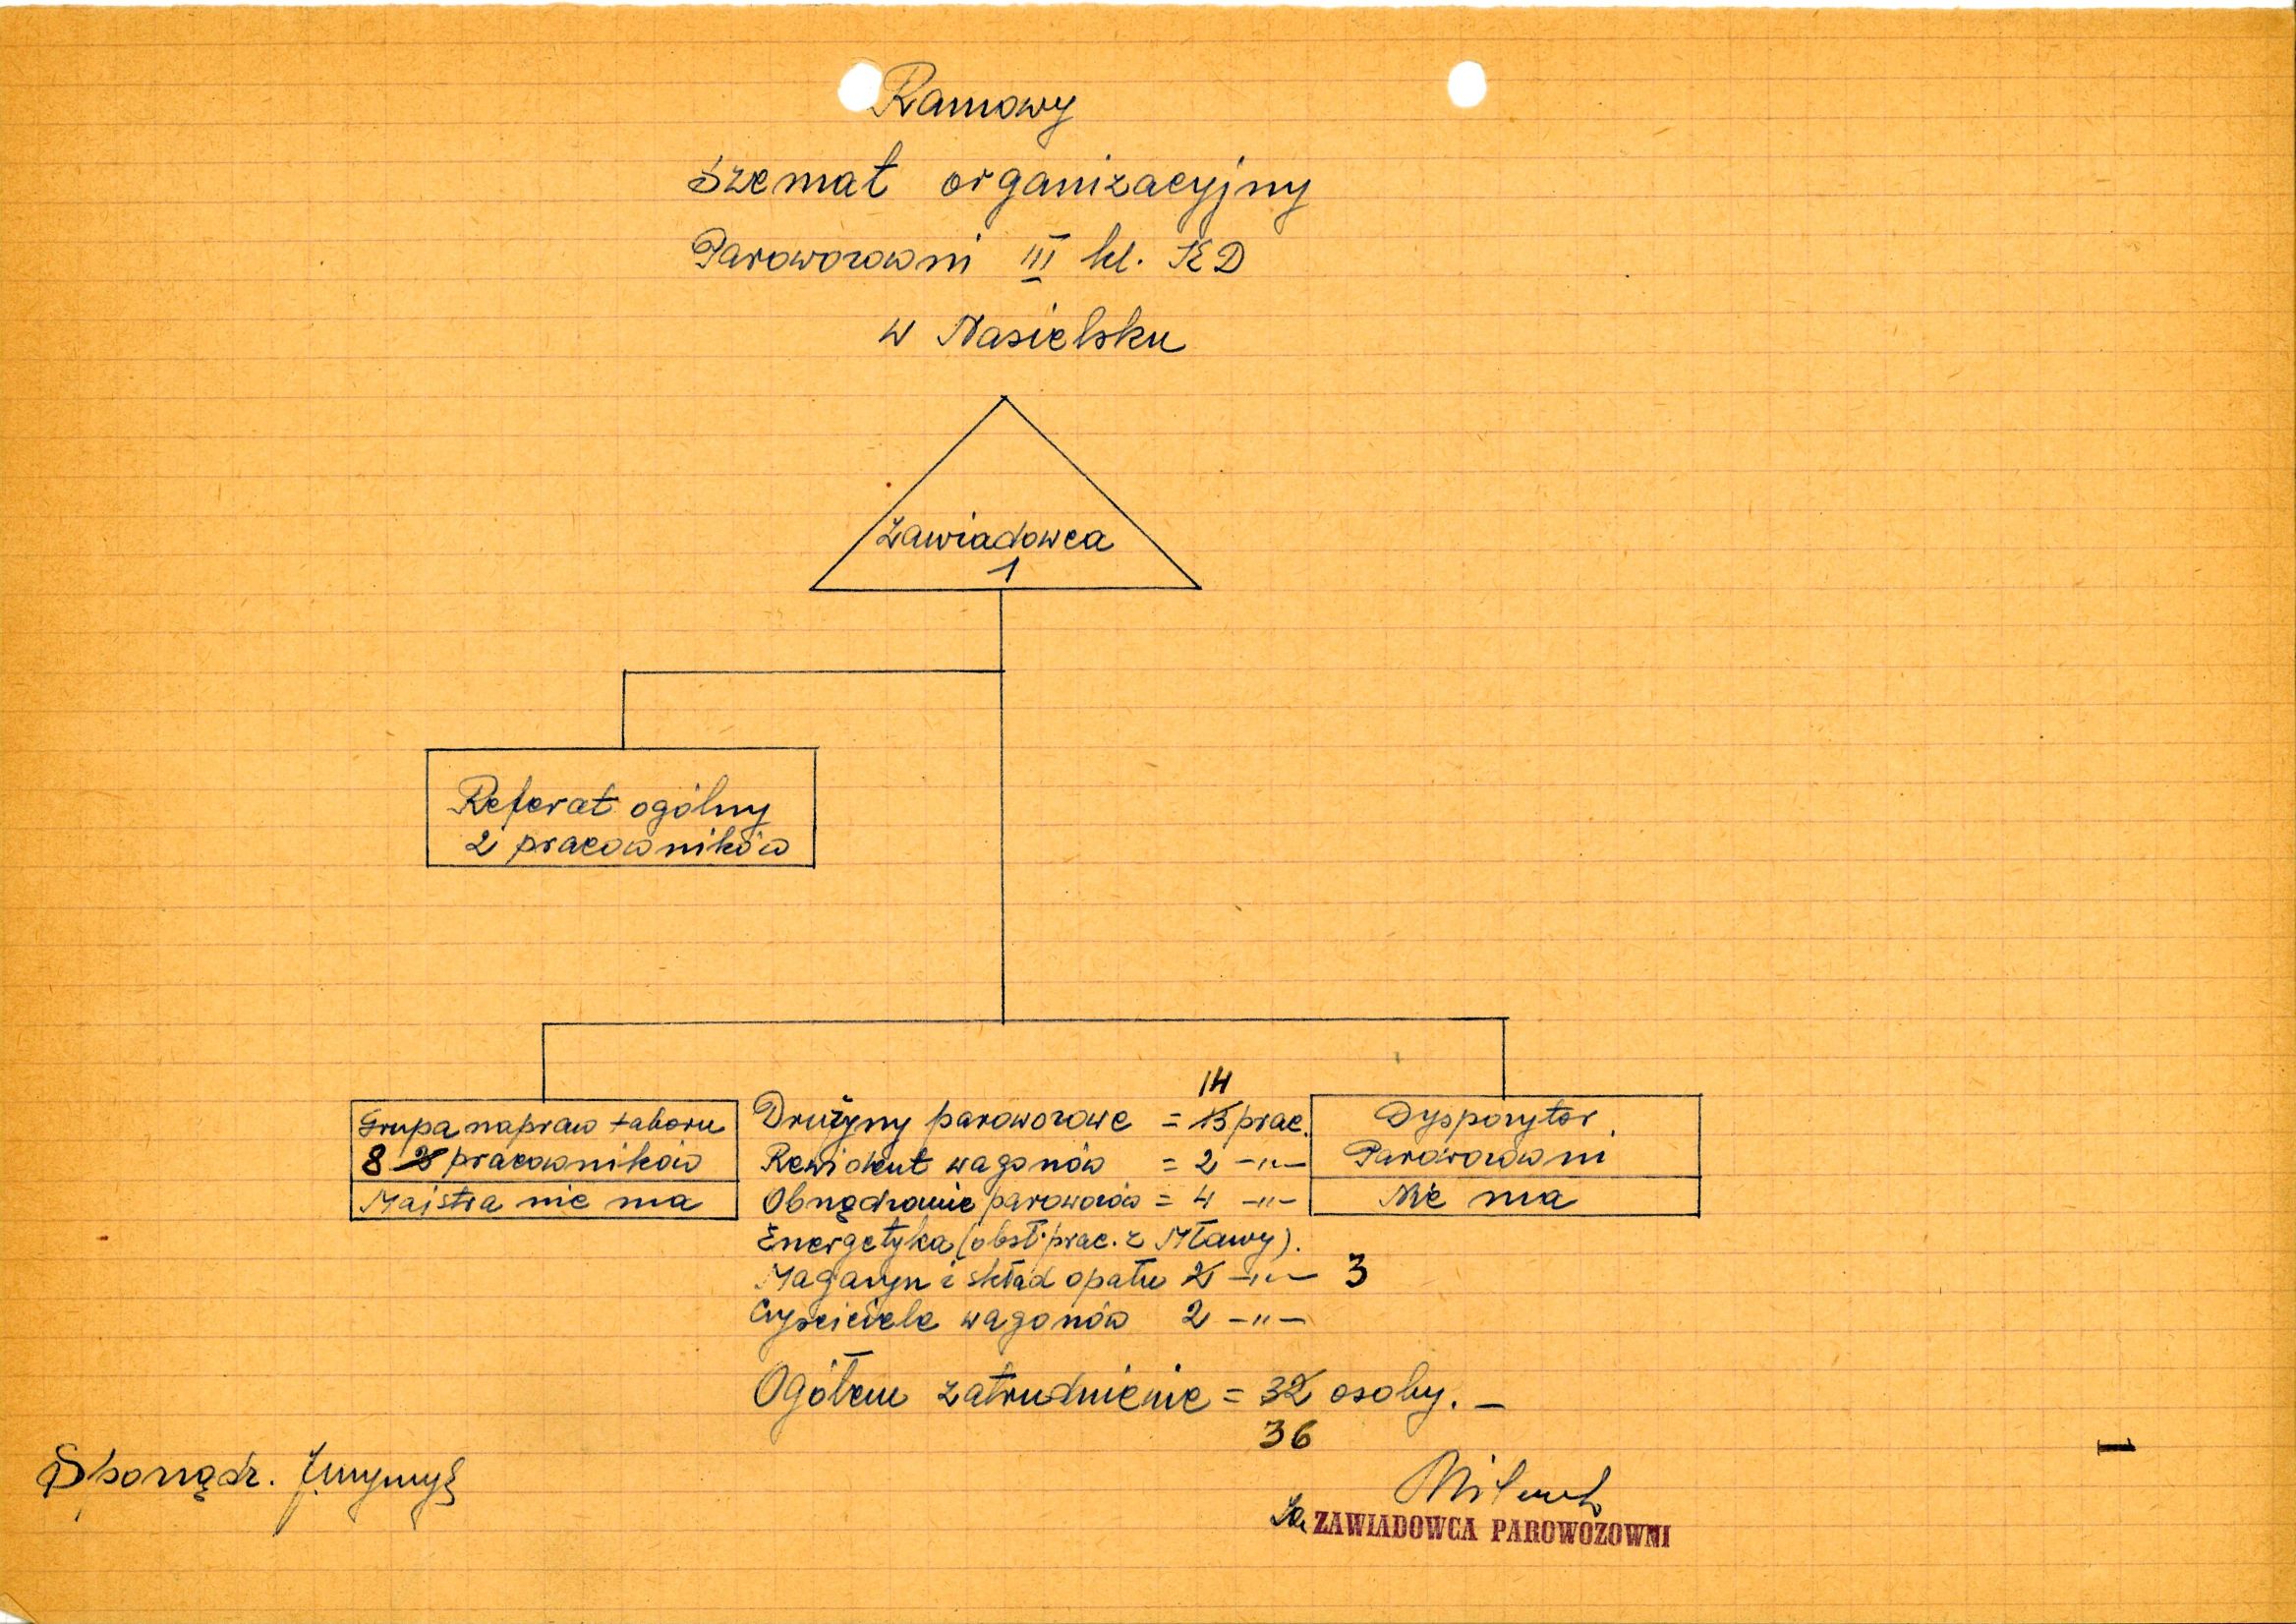 Ramowy
Szemat organizacyjny
Parowozowni III kl. KD
w Nasielsku
Zawiadowca
1
Referat ogólny
2 pracowników
Grupa napraw taboru
8 pracowników
Majstra nie ma
14
Drużyny parowozowe = 13 prac.
Rewident wagonów = 2 -"-
Obrządzanie parowozów = 4 -"-
Energetyka (obsł. prac. z Mławy).
Magazyn i skład opału 2 -"- 3
Czyściciele wagonów 2 -"-
Dyspozytor
Parowozowni
Nie ma
Ogółem zatrudnienie = 32 osoby. -
36
Sporządz.
Za ZAWIADOWCA PAROWOZOWNI
1